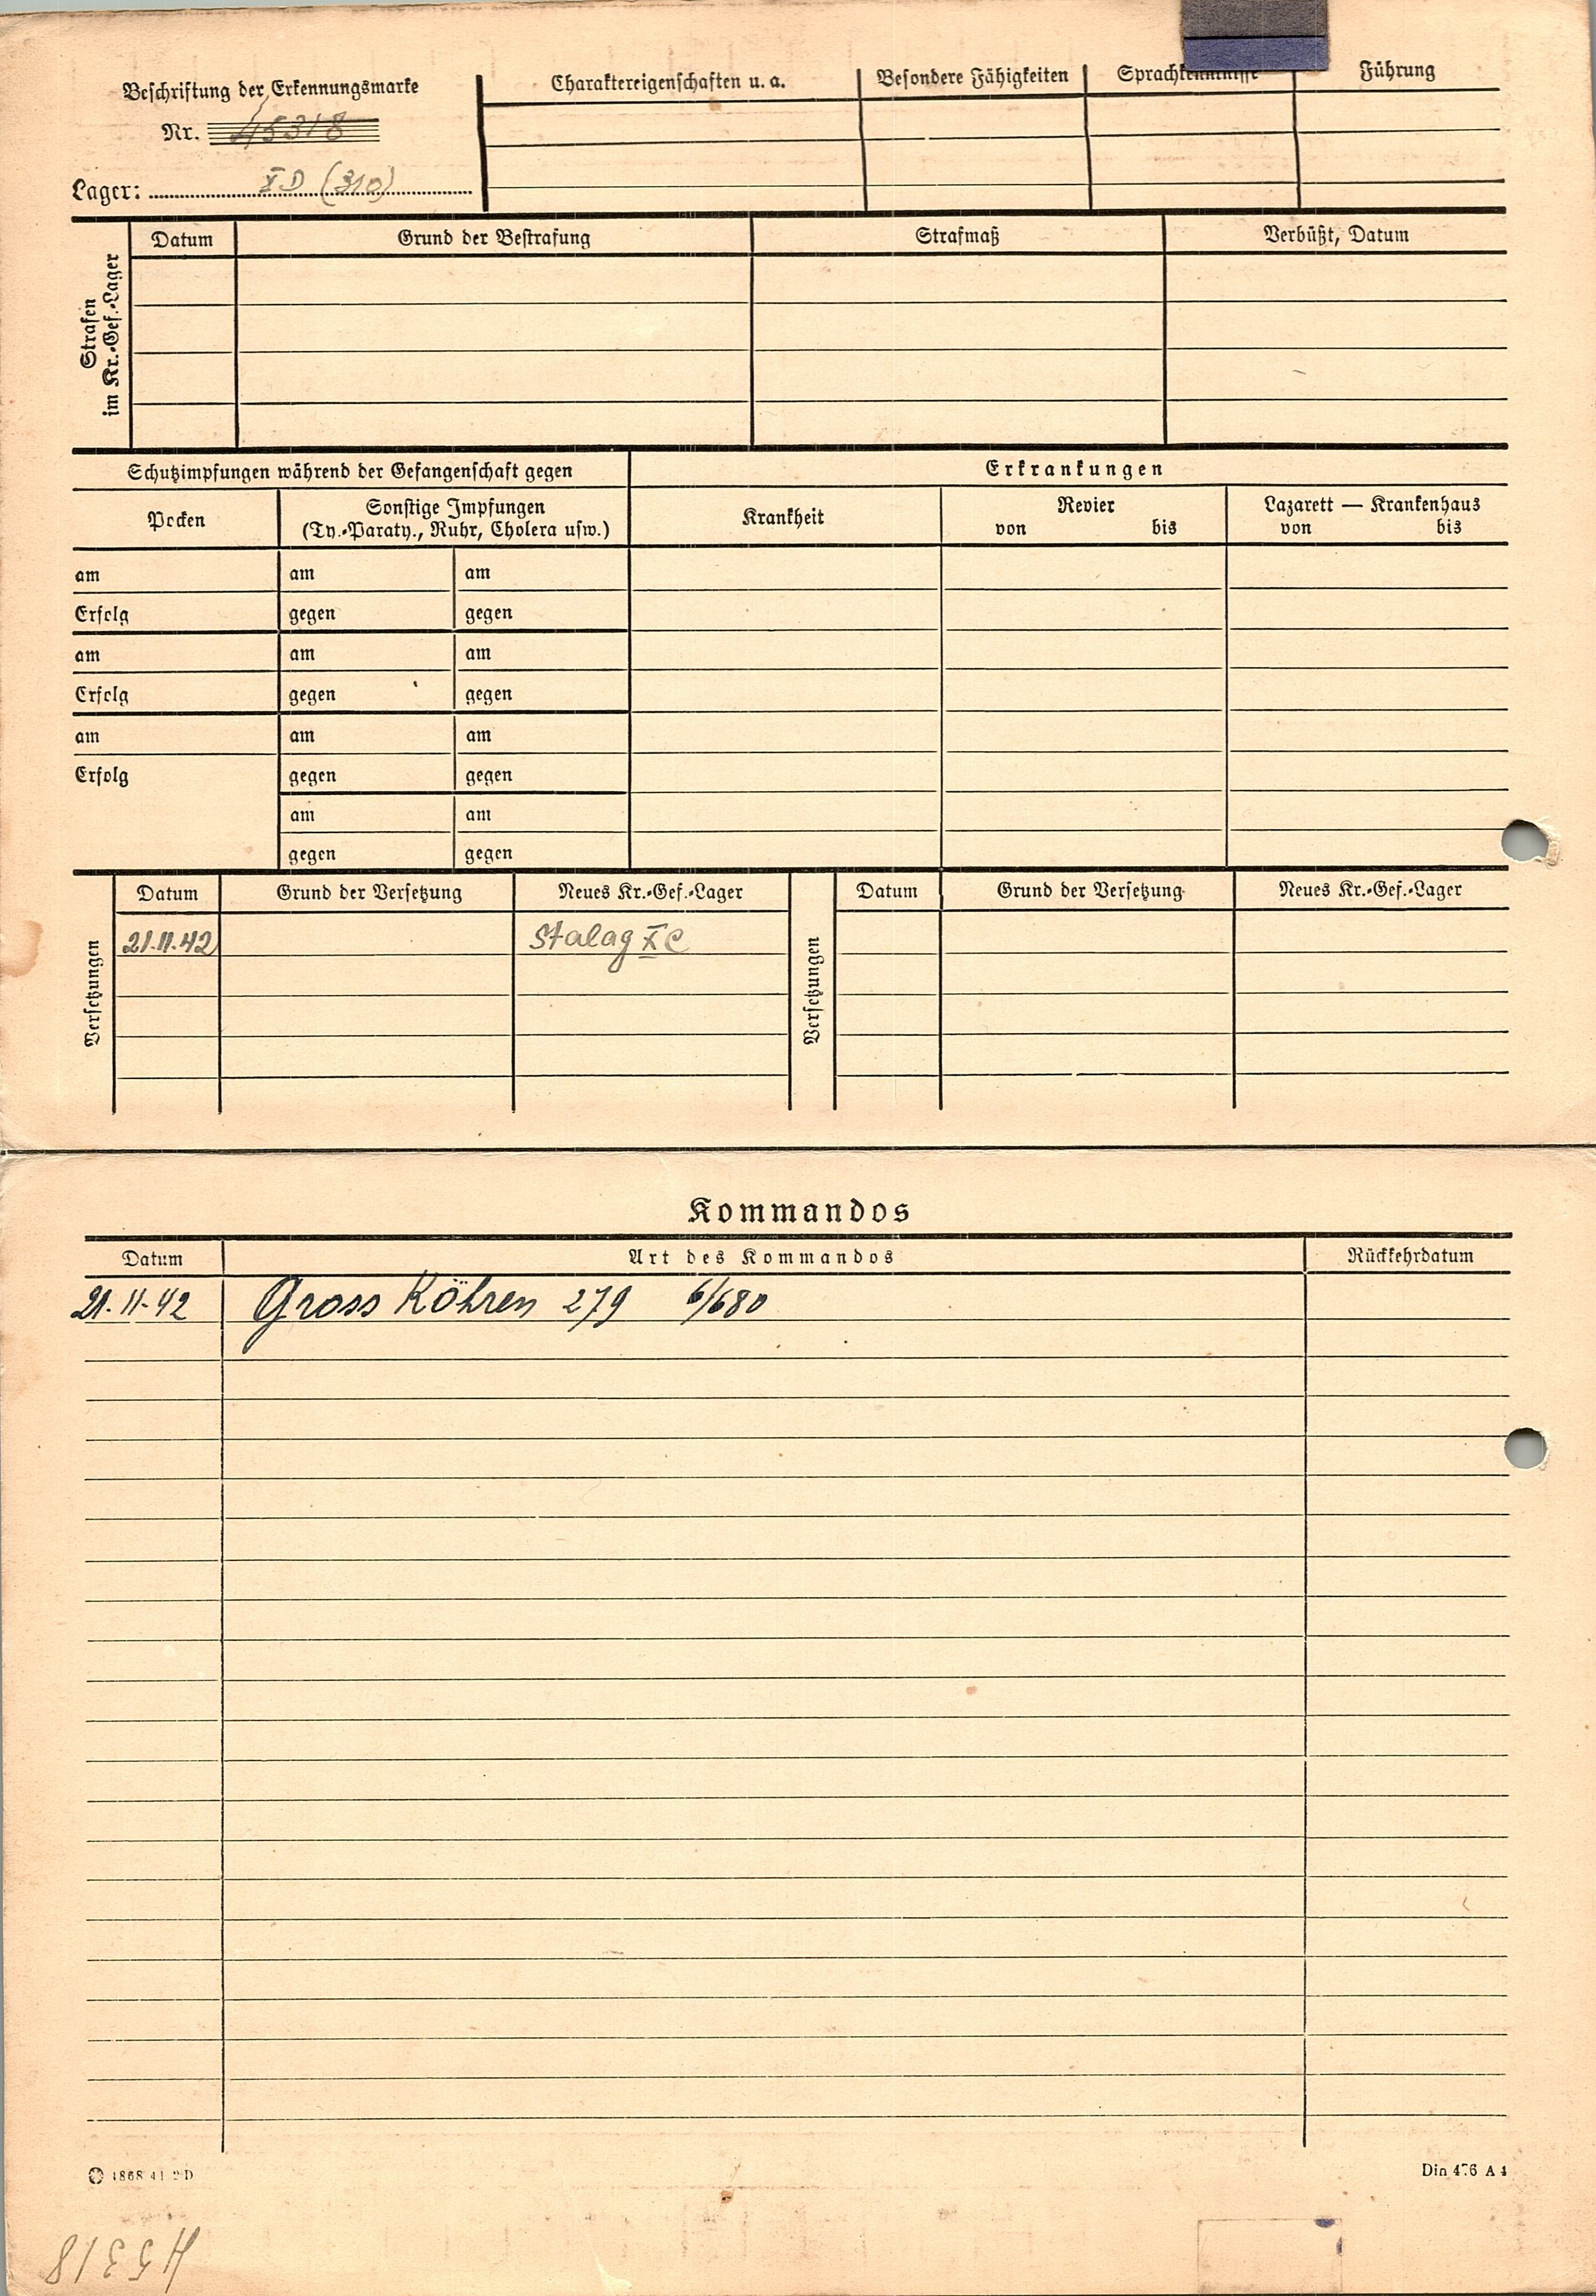 Beschriftung der Erkennungsmarke
Nr. 45318
Lager: XD (310)
Charaktereigenschaften u. a. Besondere Fähigkeiten Sprachkenntnisse Führung
Strafen
im Kr.-Gef.-Lager
Datum Grund der Bestrafung Strafmaß Verbüßt, Datum
Schutzimpfungen während der Gefangenschaft gegen Erkrankungen
Pocken
Sonstige Impfungen
(Ty.-Paraty., Ruhr, Cholera usw.)
Krankheit
Revier
von bis
Lazarett — Krankenhaus
von bis
am am am
Erfolg gegen gegen
am am am
Erfolg gegen gegen
am am am
Erfolg gegen gegen
am am
gegen gegen
Versetzungen
Datum Grund der Versetzung Neues Kr.-Gef.-Lager
21.11.42 Stalag XC
Versetzungen
Datum Grund der Versetzung Neues Kr.-Gef.-Lager
Kommandos
Datum Art des Kommandos Rückkehrdatum
21.11.42 Gross Köhren 279 6/680
1868 41 2 D
Din 476 A 4
45318